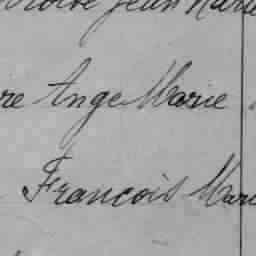 Jean Marie
re Ange Marie
Francois Mari